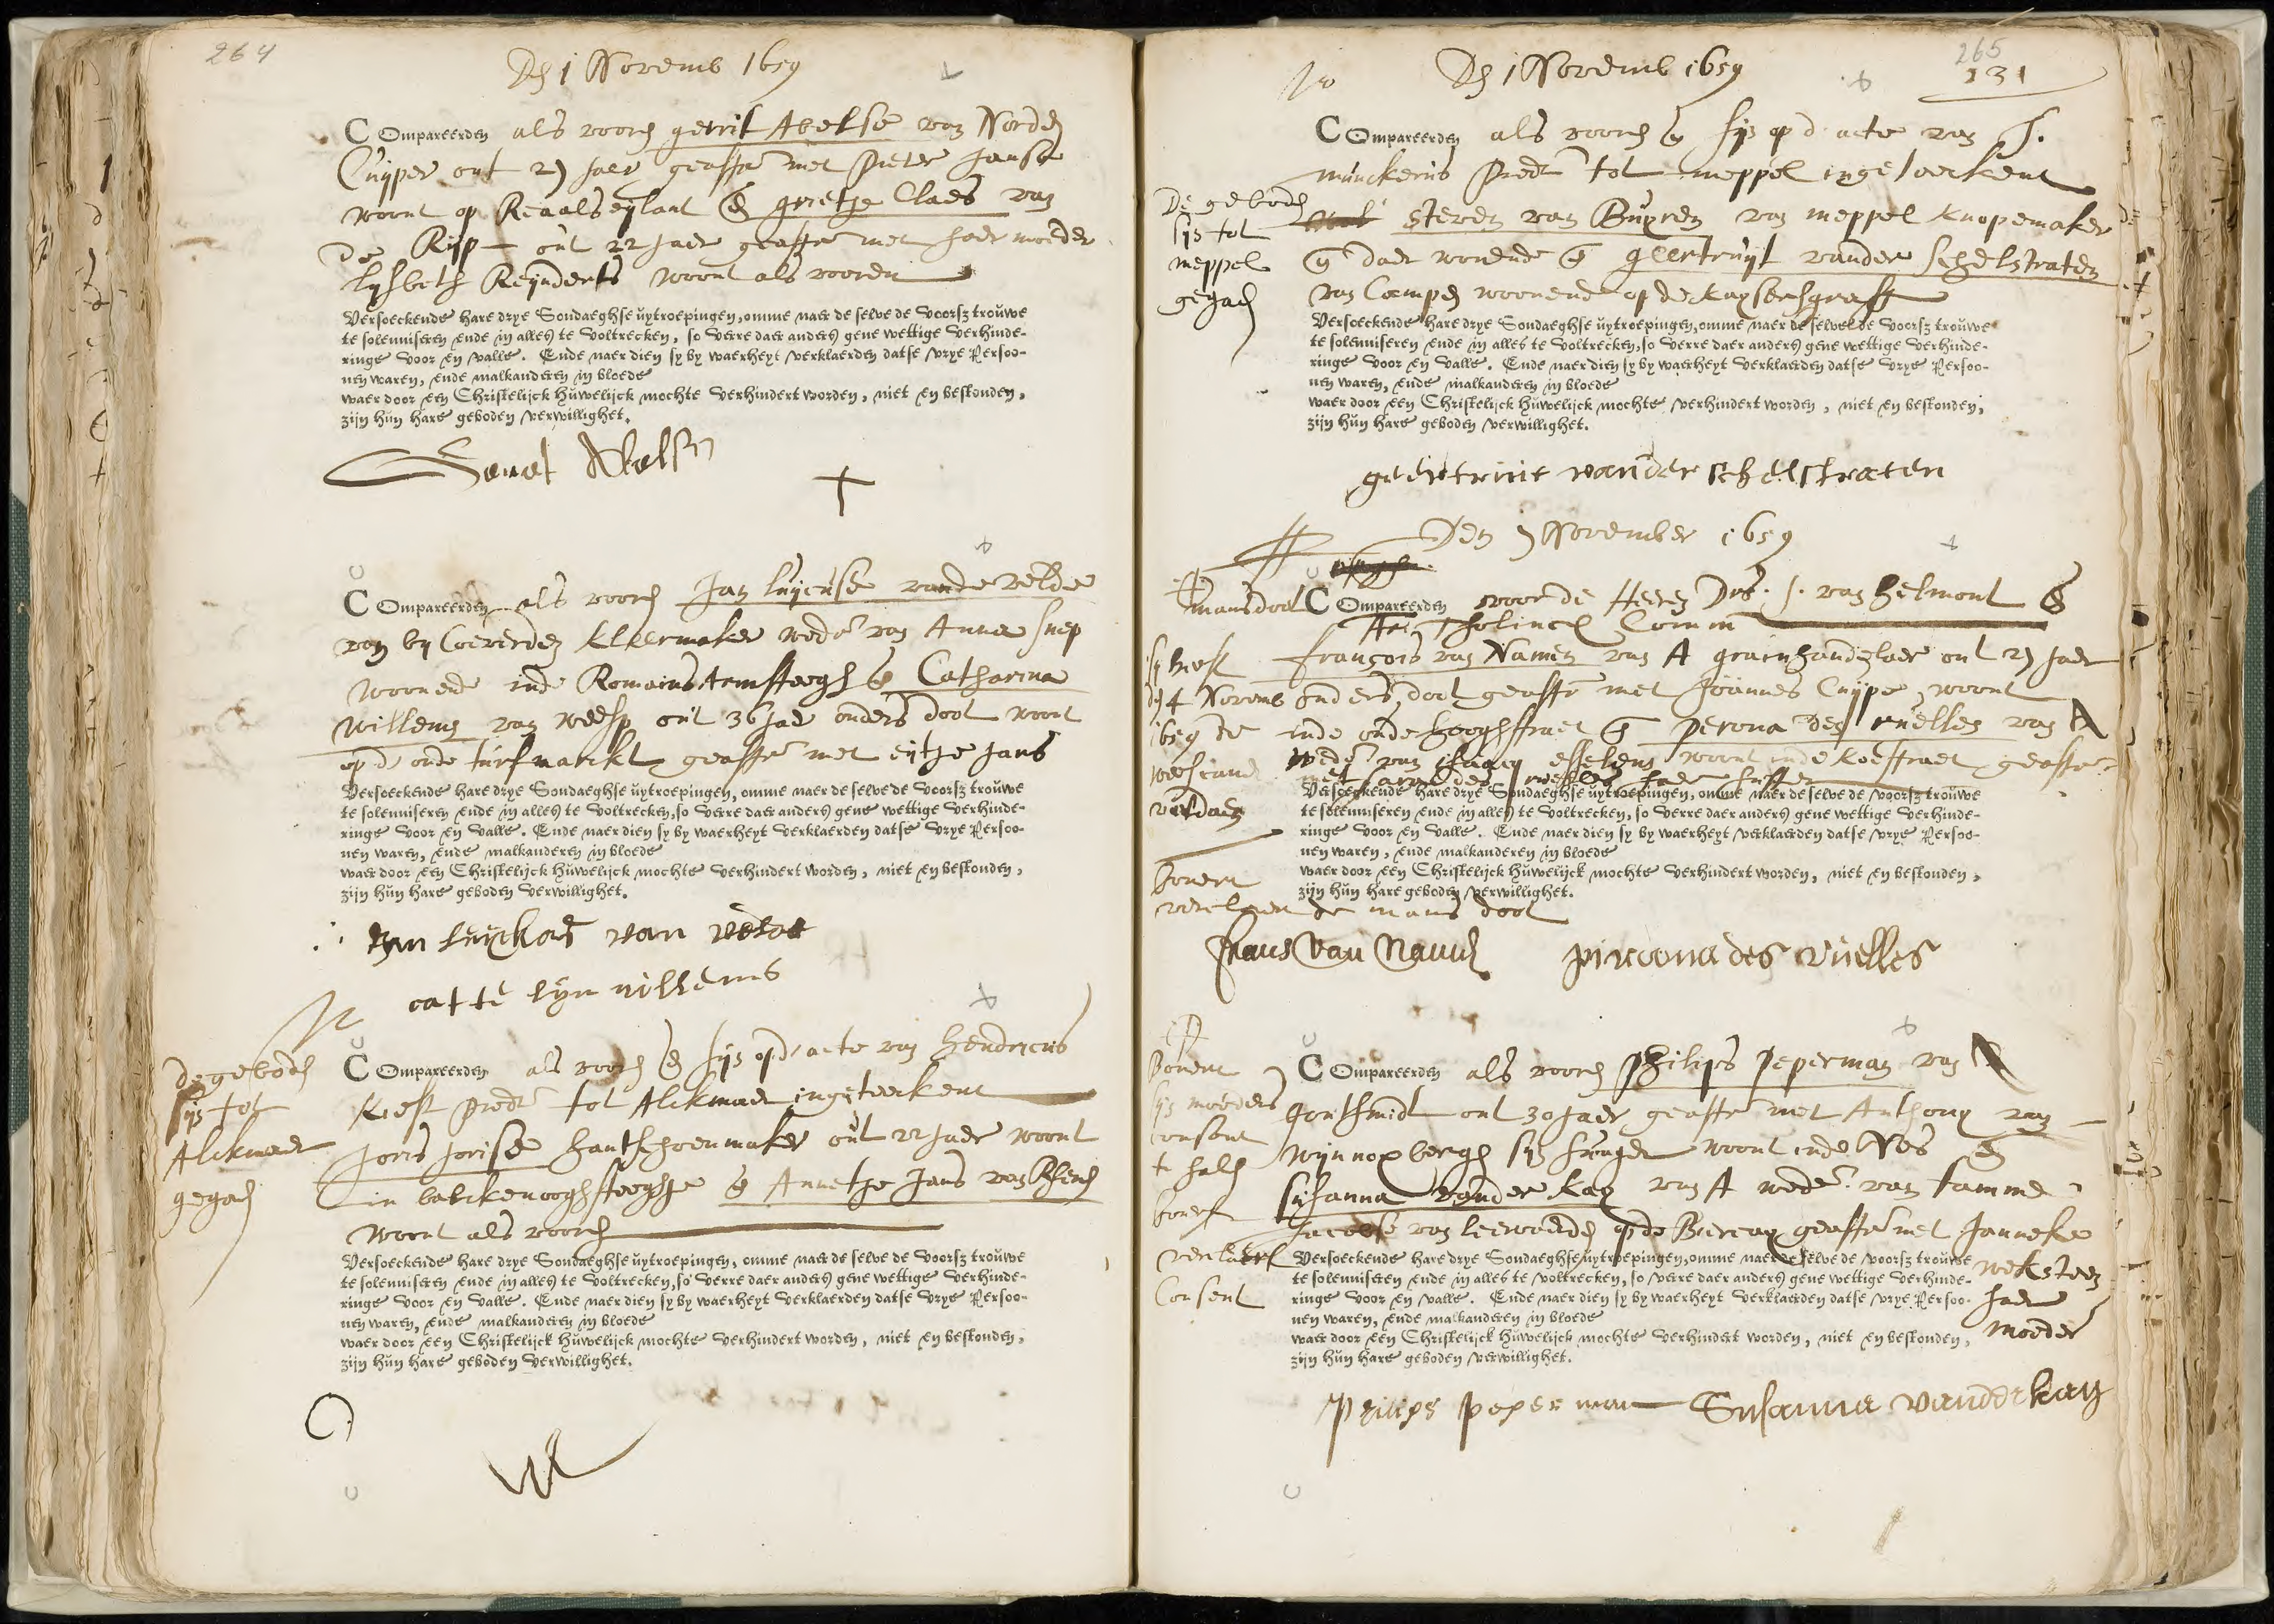 264
Den 1 Novemb 1659
COmpareerden als vooren gerrit Abelse van Norden
Cuyper out 27 Jaer geasst met Pieter Janse
woont op Reaalseylant & grietje Claes van
de Rijp out 22 Jaer geasst met haer moeder
lysbeth Reynderts woont als vooren
Versoeckende hare drye Sondaeghse uytroepingen, omme naer de selve de voorsz trouwe
te solenniseren ende in alles te voltrecken, so verre daer anders gene wettige verhinde-
ringe voor en valle. Ende naer dien sy by waerheyt verklaerden datse vrye Persoo-
nen waren, ende malkanderen in bloede
waer door een Christelijck huwelijck mochte verhindert worden, niet en bestonden,
zijn hun hare geboden verwillighet.
COmpareerden als vooren Jan luycasse vande velde
van by Coeverden kleermaker wedr van Anna snep
woonende inde Romainsarmsteegh & Catharina
willems van weesp out 36 Jaer ouders doot woont
op d' oude turfmarckt geasst met eytje Jans
Versoeckende hare drye Sondaeghse uytroepingen, omme naer de selve de voorsz trouwe
te solenniseren ende in alles te voltrecken, so verre daer anders gene wettige verhinde-
ringe voor en valle. Ende naer dien sy by waerheyt verklaerden datse vrye Persoo-
nen waren, ende malkanderen in bloede
waer door een Christelijck huwelijck mochte verhindert worden, niet en bestonden,
zijn hun hare geboden verwillighet.
Jan luyckas van velde
catte lyn willems
de geboden
sijn tot
Alckmaer
gegaen
COmpareerden als vooren & sijn op d' acte van hendricus
Kest predt tot Alckmaer ingeteeckent
Joris Jorisse hantschoenmaker out 22 Jaer woont
in backenooghsteeghje & Annetje Jans van Rhenen
woont als vooren
Versoeckende hare drye Sondaeghse uytroepingen, omme naer de selve de voorsz trouwe
te solenniseren ende in alles te voltrecken, so verre daer anders gene wettige verhinde-
ringe voor en valle. Ende naer dien sy by waerheyt verklaerden datse vrye Persoo-
nen waren, ende malkanderen in bloede
waer door een Christelijck huwelijck mochte verhindert worden, niet en bestonden,
zijn hun hare geboden verwillighet.
265
131
Den 1 Novemb 1659
COmpareerden als vooren & sijn op d' acte van J.
munckerus Predt tot meppel ingeteeckent
De geboden
sijn tot
meppel
gegaen
steven van Buyren van meppel knopemaker
& daer wonende & geertruyt vander schelstraten
van Campen woonende op de kaysersgraft
Versoeckende hare drye Sondaeghse uytroepingen, omme naer de selve de voorsz trouwe
te solenniseren ende in alles te voltrecken, so verre daer anders gene wettige verhinde-
ringe voor en valle. Ende naer dien sy by waerheyt verklaerden datse vrye Persoo-
nen waren, ende malkanderen in bloede
waer door een Christelijck huwelijck mochte verhindert worden, niet en bestonden,
zijn hun hare geboden verwillighet.
geertruit vander schelstraten
Den 7 November 1659
mans doot
COmpareerden voor de Heeren Drs. J. van helmont &
Tholincx Comm
françois van Namen van A graenhandelaer out 27 Jaer
ouders doot geasst met Joannes Cuype, woont
inde oude hooghstraet & Perona des ruelles van A
wedr van isaacq esselens woont inde koestraet geasst
met sara des ruelles haer suster
4 Novemb
1659 de
voldaen
Versoeckende hare drye Sondaeghse uytroepingen, omme naer de selve de voorsz trouwe
te solenniseren ende in alles te voltrecken, so verre daer anders gene wettige verhinde-
ringe voor en valle. Ende naer dien sy by waerheyt verklaerden datse vrye Persoo-
nen waren, ende malkanderen in bloede
waer door een Christelijck huwelijck mochte verhindert worden, niet en bestonden,
zijn hun hare geboden verwillighet.
de mans doot
frans van Namen pirona des ruelles
COmpareerden als vooren Philips Peperman van A
goutsmidt out 30 Jaer geasst met Anthony van
wynnoxbergh sijn swager woont inde Nes &
susanna vander kay van A wedr van tamme
Jacobse van leewarden op de Bierkay geasst met Janneke
weksteen
haer
moeder
sijn moeders
consent
te halen
Consent
Versoeckende hare drye Sondaeghse uytroepingen, omme naer de selve de voorsz trouwe
te solenniseren ende in alles te voltrecken, so verre daer anders gene wettige verhinde-
ringe voor en valle. Ende naer dien sy by waerheyt verklaerden datse vrye Persoo-
nen waren, ende malkanderen in bloede
waer door een Christelijck huwelijck mochte verhindert worden, niet en bestonden,
zijn hun hare geboden verwillighet.
Philips peperman Susanna vander kay